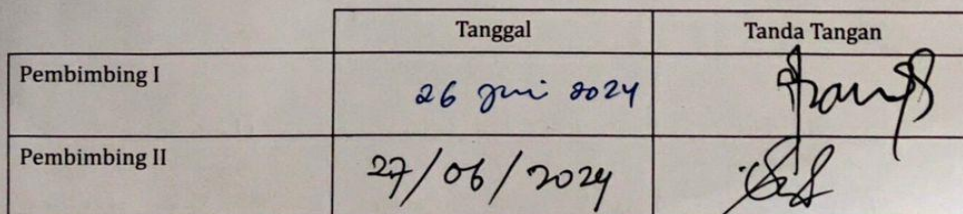 Tanggal Tanda Tangan
Pembimbing I 26 Juni 2024
Pembimbing II 27/06/2024